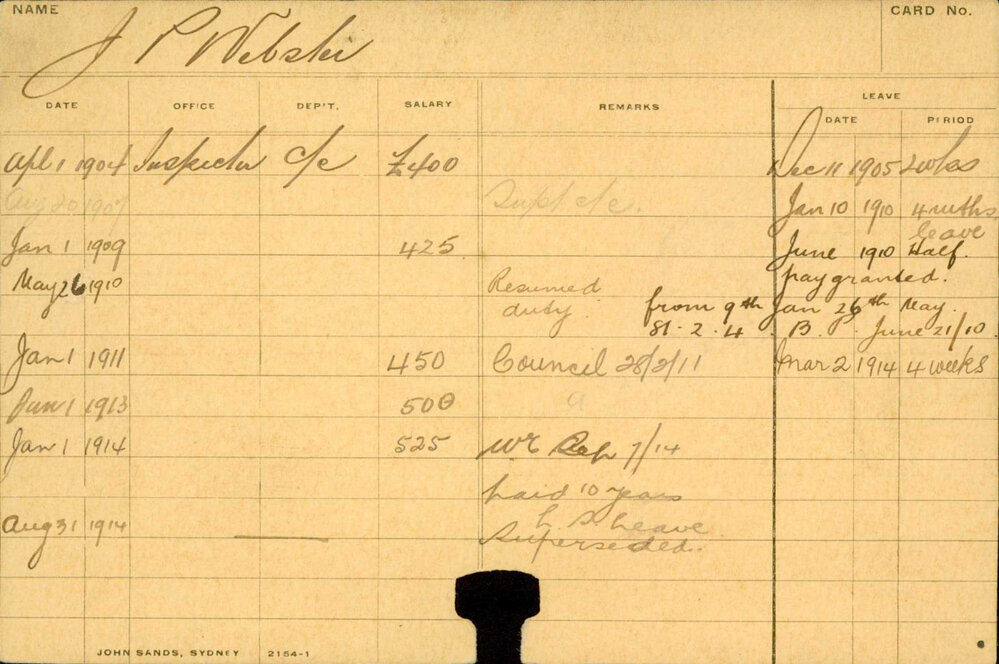 NAME
CARD No.
J P Webster
DATE OFFICE DEP'T. SALARY REMARKS LEAVE
DATE PERIOD
Apl 1 1904 Inspector c/c £400 Dec 11 1905 2 wks
Aug 20 1907 Supt c/c. Jan 10 1910 4 mths
leave
Jan 1 1909 425 June 1910 Half
pay granted.
May 26 1910 Resumed
duty from 9th Jan 26th May.
81-2-4. B. P. June 21/10
Jan 1 1911 450 Council 28/2/11 Mar 2 1914 4 weeks
Jan 1 1913 500
Jan 1 1914 525 7/14
paid 10 years
L S Leave
Aug 31 1914 Superseded.
JOHN SANDS, SYDNEY 2154-1